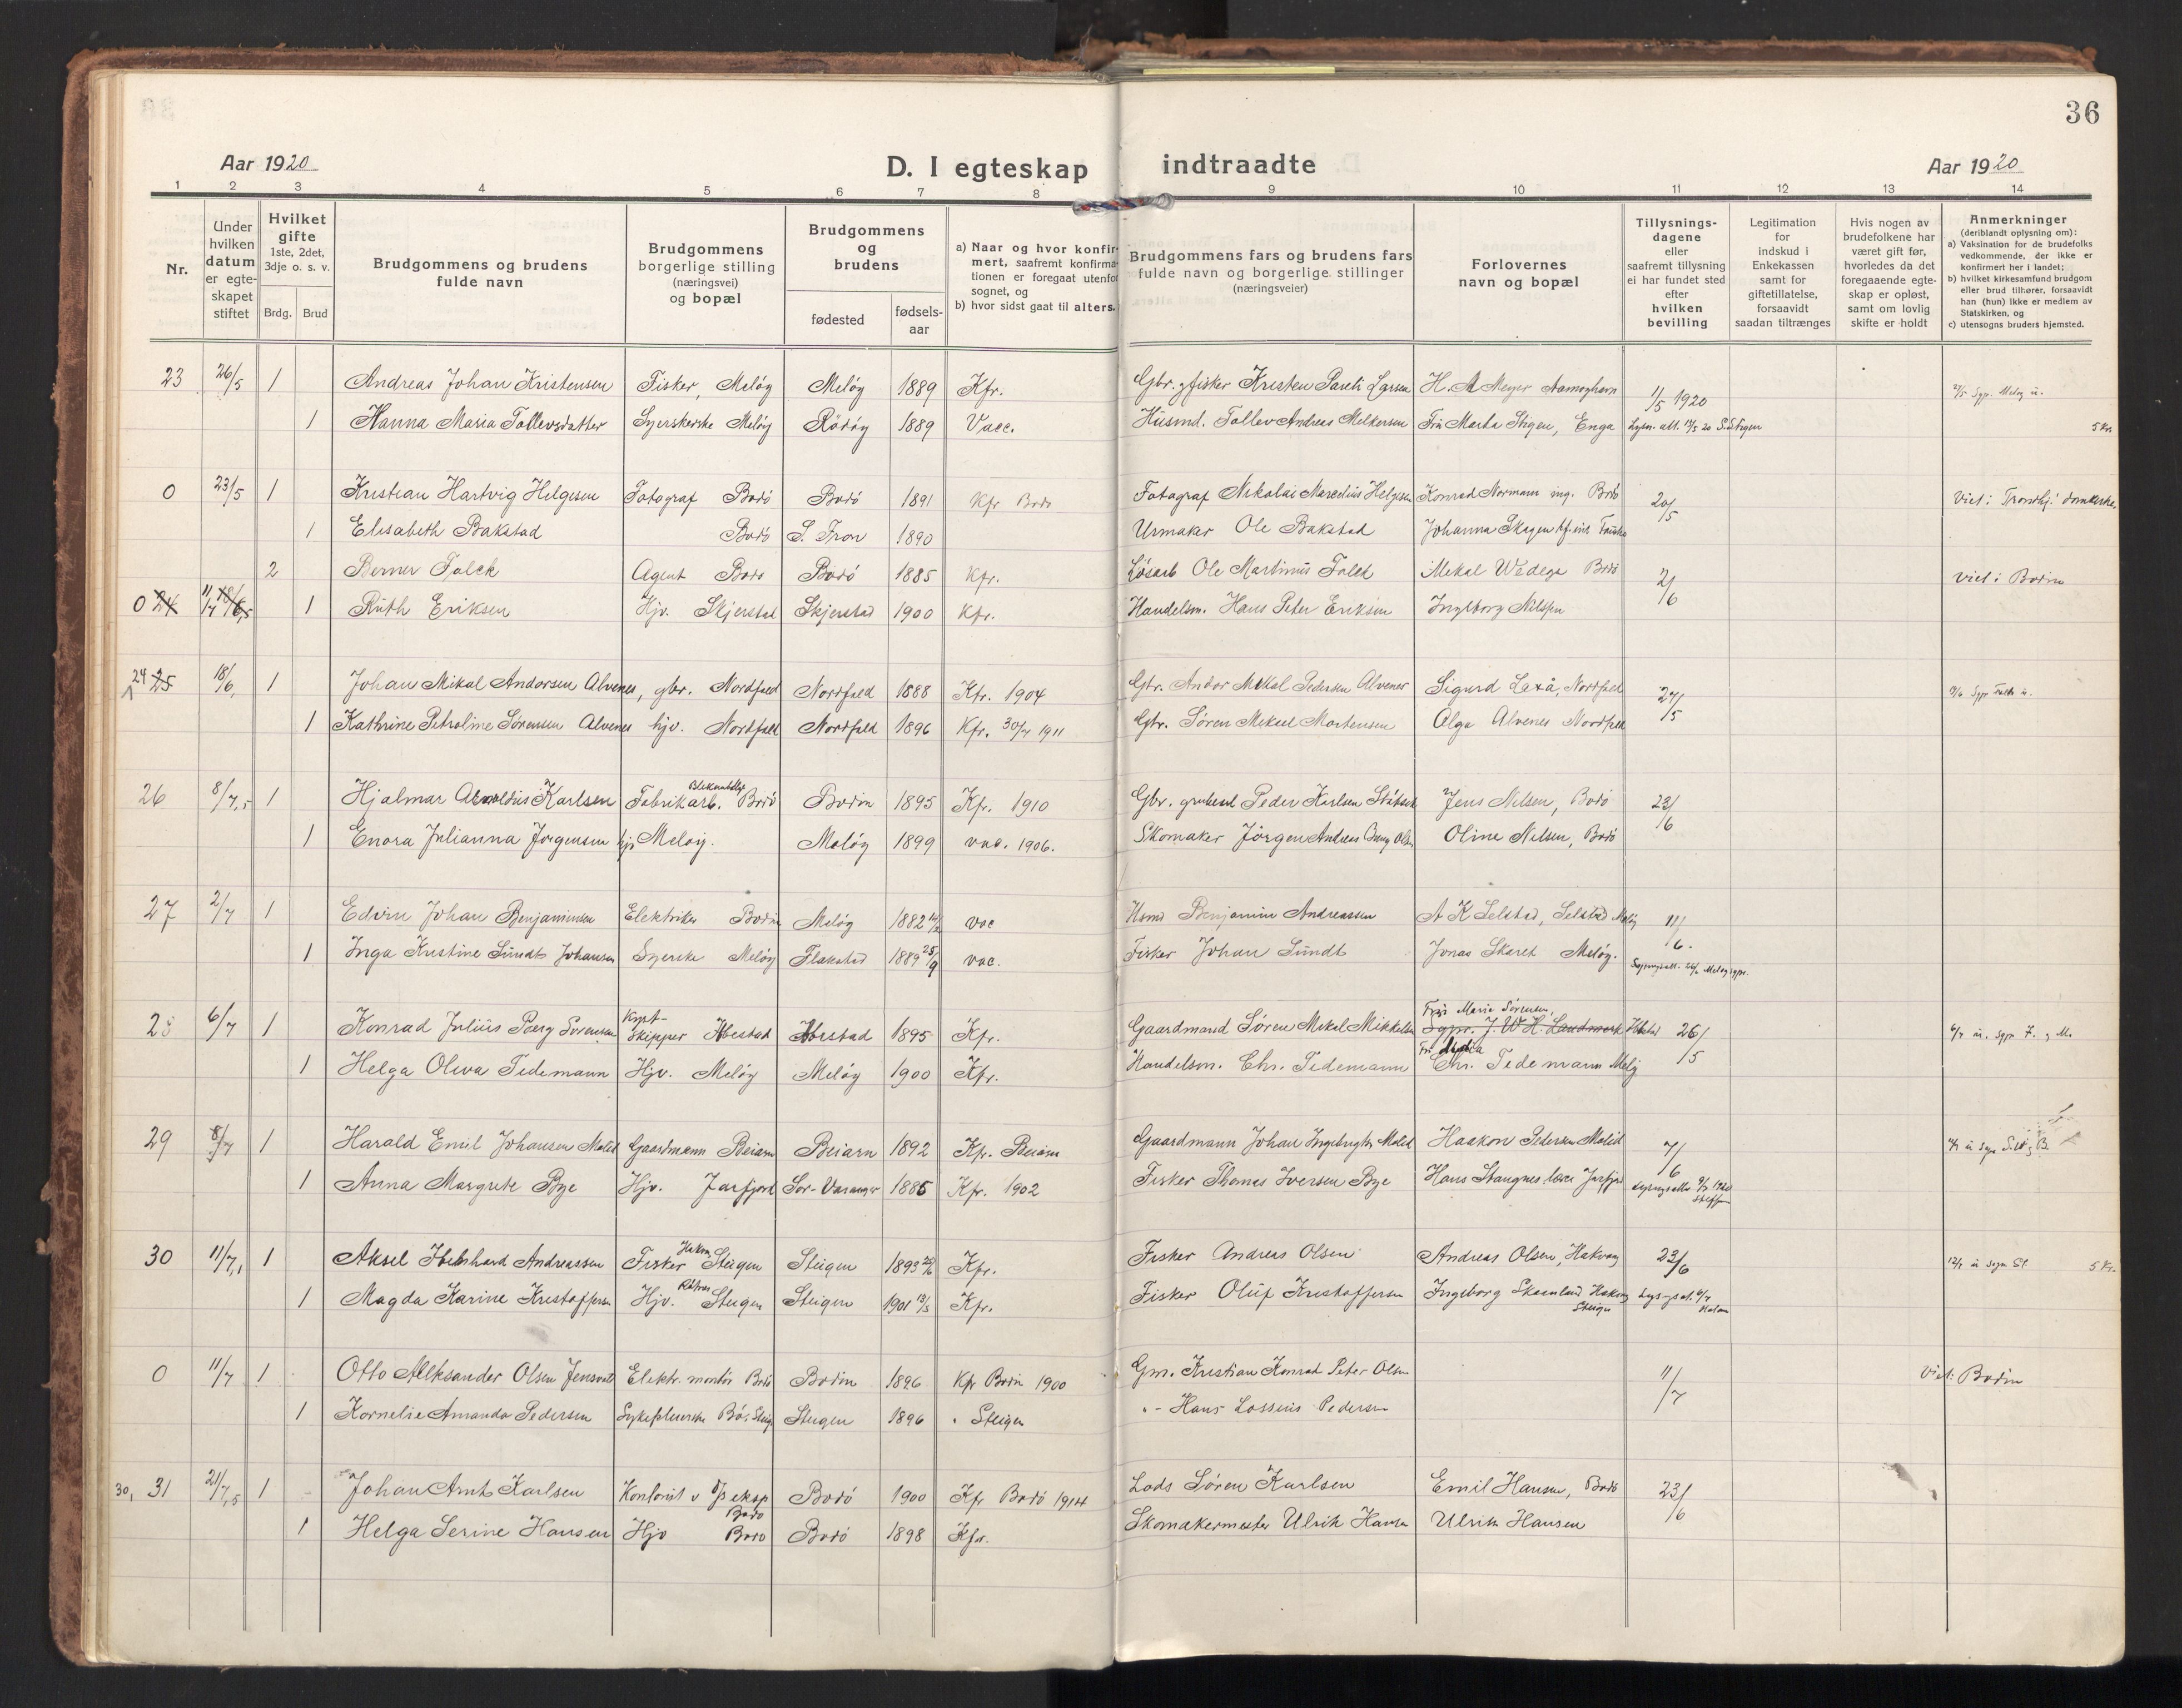 36
Aar 1920
D. I egteskap indtraadte
Aar 1920
1 2 3 4 5 6 7 8 9 10 11 12 13 14
Nr.
Under hvilken datum er egteskapet stiftet
Hvilket gifte 1ste, 2det, 3dje o. s. v.
Brdg. Brud
Brudgommens og brudens fulde navn
Brudgommens borgerlige stilling (næringsvei) og bopæl
Brudgommens og brudens
fødested
fødsels-aar
a) Naar og hvor konfirmert, saafremt konfirmationen er foregaat utenfor sognet, og
b) hvor sidst gaat til alters.
Brudgommens fars og brudens fars fulde navn og borgerlige stillinger (næringsveier)
Forlovernes navn og bopæl
Tillysnings-dagene eller saafremt tillysning ei har fundet sted efter hvilken bevilling
Legitimation for indskud i Enkekassen samt for giftetillatelse, forsaavidt saadan tiltrænges
Hvis nogen av brudefolkene har været gift før, hvorledes da det foregaaende egteskap er opløst, samt om lovlig skifte er holdt
Anmerkninger (deriblandt oplysning om):
a) Vaksination for de brudefolks vedkommende, der ikke er konfirmert her i landet;
b) hvilket kirkesamfund brudgom eller brud tilhører, forsaavidt han (hun) ikke er medlem av Statskirken, og
c) utensogns bruders hjemsted.
23 26/5 1 Andreas Johan Kristensen Fisker, Meløy Meløy 1889 Kfr. Gbr. og fisker Kristen Larsen H. A Meyer 11/5 1920
1 Hanna Maria Tollevsdatter Syerskerske Meløy Rödöy 1889 Vacc. Husmd. Tollev Andreas Melkersen Frü Marta Stigen, Enga 5 Kr.
0 23/5 1 Kristian Hartvig Helgesen Fotograf Bodö Bodö 1891 Kfr Bodö Fotograf Nikolai Marcelius Helgesen Konrad Normann ing. Bodö 20/5 Viet i Trondhj. domkirke
1 Elisabeth Bakstad Bodö S. Tron 1890 Urmaker Ole Bakstad Johanna Skagen
2 Berner Falck Agent Bodö Bodö 1885 Kfr. Lösarb Ole Martinus Falck Mikal Wadega Bodö 2/6 Viet i Bodin
0 24 11/7 1 Ruth Eriksen Hjv. Skjerstad Skjerstad 1900 Kfr. Handelsm. Hans Peter Eriksen Ingeborg Nilssen
24 25 18/6 1 Johan Mikal Andorsen Alvenes, gbr. Nordfold Nordfold 1888 Kfr. 1904 Gbr. Andor Mikal Pedersen Alvenes Sigurd Laxå, Nordfold 27/5
1 Kathrine Petroline Sørensen Alvenes hjv. Nordfold Nordfold 1896 Kfr. 30/7 1911 Gbr. Søren Mikael Mortensen Olga Alvenes Nordfold
26 8/7,5 1 Hjalmar Karlsen Fabrikarb. Bodö Bodin 1895 Kfr. 1910 Gbr. Peder Karlsen Jens Nilsen, Bodö 23/6
1 Enora Julianna Jørgensen hjv Meløy. Meløy 1899 vac. 1906. Skomaker Jörgen Andreas Oline Nilsen, Bodö
27 2/7 1 Edvin Johan Benjaminsen Elektriker Bodin Meløy 1882 vac Husmd Benjamin Andreassen A K Selstad, Selstad Meløy 11/6.
1 Inga Kristine Sundt Johansen Syerske Meløy Flakstad 1889 25/9 vac. Fisker Johan Sundt Jonas Skaret Meløy.
28 6/7 1 Konrad Julius Berg Sørensen Skipper Ibestad Ibestad 1895 Kfr. Gaardmand Søren Mikal Mikkelsen Frü Maria Sørensen, Sgpr. J. W. H. Landmark 26/5
1 Helga Oliva Tidemann Hjv. Meløy Meløy 1900 Kfr. Handelsm. Chr. Tidemann Chr. Tidemann Meløy
29 8/7 1 Harald Emil Johansen Molid Gaardmann Beiarn Beiarn 1892 Kfr. Beiarn Gaardmann Johan Ingebrigts Molid Haakon Petersen Molid 7/6
1 Anna Margrete Bye Hjv. Jarfjord Sør-Varanger 1885 Kfr. 1902 Fisker Thomas Iversen Bye Hans Stangnes
30 11/7,1 1 Aksel Andreassen Fisker Steigen Steigen 1893 Kfr. Fisker Andreas Olsen Andreas Olsen, Hakvaag 23/6 5 Kr.
1 Magda Karine Kristoffersen Hjv. Steigen Steigen 1901 Kfr. Fisker Oluf Kristoffersen Ingeborg Steigen
0 11/7 1 Otto Alleksander Olsen Elektr. montör Bodö Bodin 1896 Kfr Bodin 1900 Gm. Kristian Konrad Peter Olsen 11/7 Viet i Bodin
1 Kornelie Amanda Pedersen Sykepleierske Steigen 1896 " Steigen " - Hans Lossius Pedersen
30, 31 21/7,5 1 Johan Arnt Karlsen Kontorist v D/S eksp Bodö Bodö 1900 Kfr Bodö 1914 Lods Søren Karlsen Emil Hansen, Bodö 23/6
1 Helga Serine Hansen Hjv Bodö Bodö 1898 Kfr. Skomakermester Ulrik Hansen Ulrik Hansen